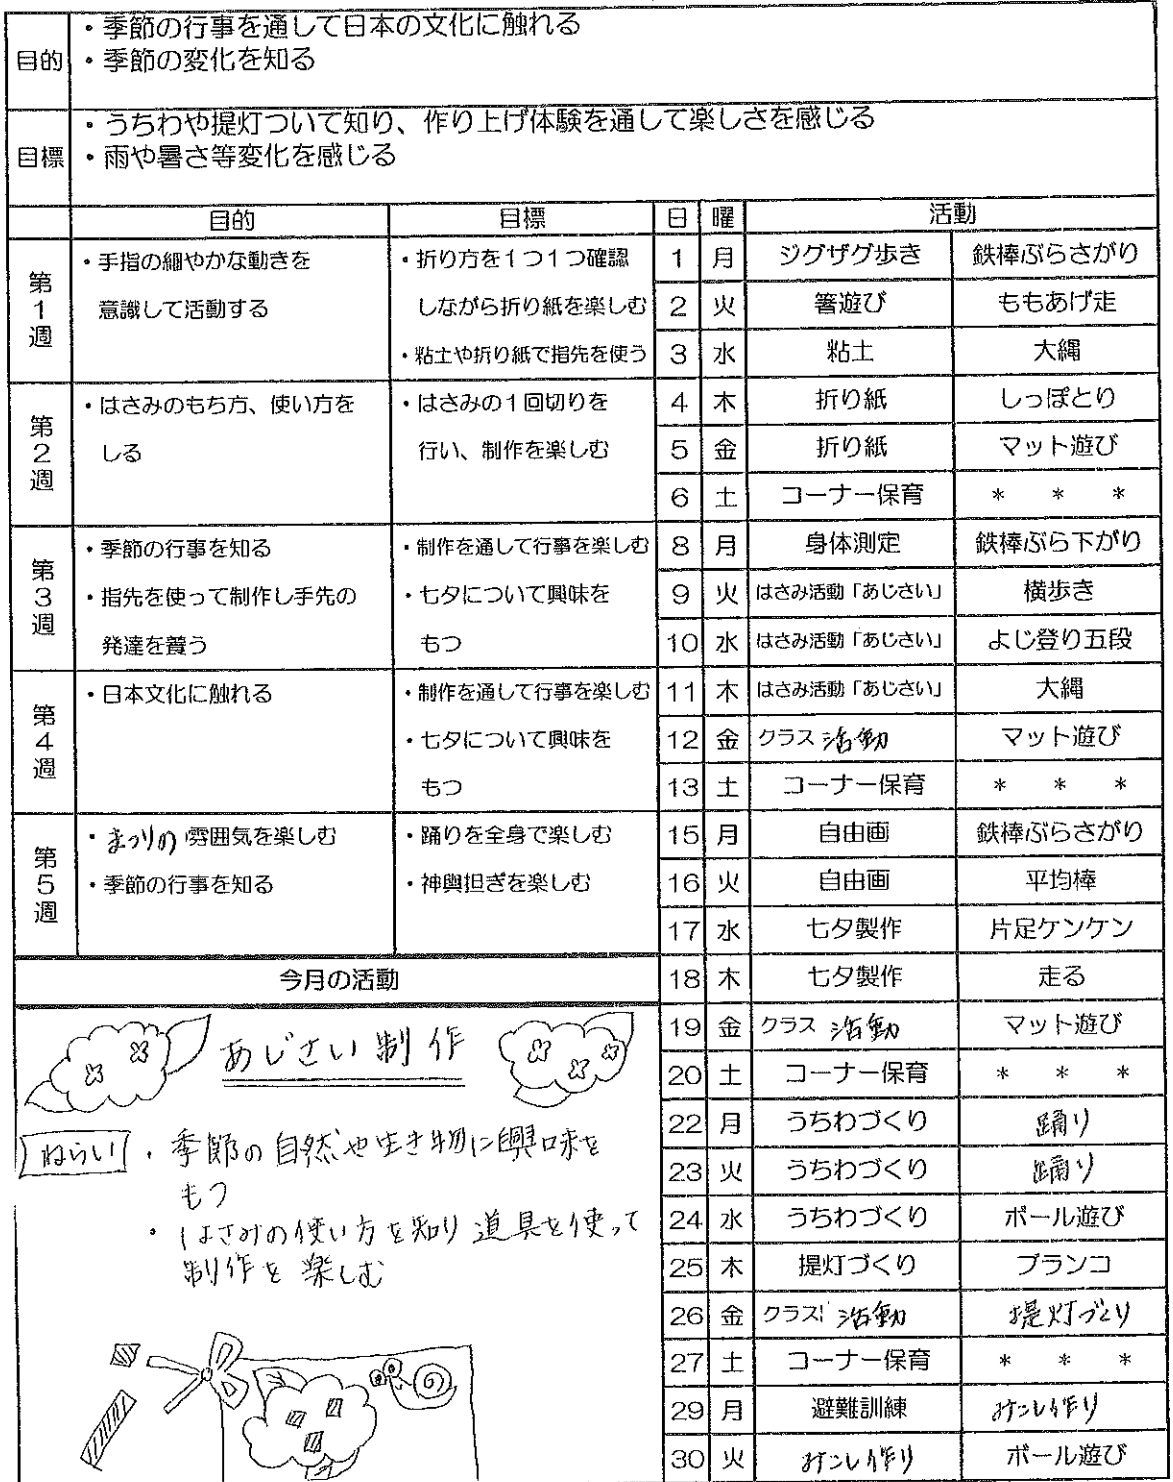 目的
・季節の行事を通して日本の文化に触れる
・季節の変化を知る
目標
・うちわや提灯ついて知り、作り上げ体験を通して楽しさを感じる
・雨や暑さ等変化を感じる
目的 目標
第1週
・手指の細やかな動きを
意識して活動する
・折り方を1つ1つ確認
しながら折り紙を楽しむ
・粘土や折り紙で指先を使う
第2週
・はさみのもち方、使い方を
しる
・はさみの1回切りを
行い、制作を楽しむ
第3週
・季節の行事を知る
・指先を使って制作し手先の
発達を養う
・制作を通して行事を楽しむ
・七夕について興味を
もつ
第4週
・日本文化に触れる
・制作を通して行事を楽しむ
・七夕について興味を
もつ
第5週
・まつりの雰囲気を楽しむ
・季節の行事を知る
・踊りを全身で楽しむ
・神輿担ぎを楽しむ
日 曜 活動
1 月 ジグザグ歩き 鉄棒ぶらさがり
2 火 箸遊び ももあげ走
3 水 粘土 大縄
4 木 折り紙 しっぽとり
5 金 折り紙 マット遊び
6 土 コーナー保育 * * *
8 月 身体測定 鉄棒ぶら下がり
9 火 はさみ活動「あじさい」 横歩き
10 水 はさみ活動「あじさい」 よじ登り五段
11 木 はさみ活動「あじさい」 大縄
12 金 クラス活動 マット遊び
13 土 コーナー保育 * * *
15 月 自由画 鉄棒ぶらさがり
16 火 自由画 平均棒
17 水 七夕製作 片足ケンケン
18 木 七夕製作 走る
19 金 クラス活動 マット遊び
20 土 コーナー保育 * * *
22 月 うちわづくり 踊り
23 火 うちわづくり 踊り
24 水 うちわづくり ボール遊び
25 木 提灯づくり ブランコ
26 金 クラス活動 提灯づくり
27 土 コーナー保育 * * *
29 月 避難訓練 みこし作り
30 火 みこし作り ボール遊び
今月の活動
あじさい制作
ねらい
・季節の自然や生き物に興味を
もつ
・はさみの使い方を知り道具を使って
制作を楽しむ